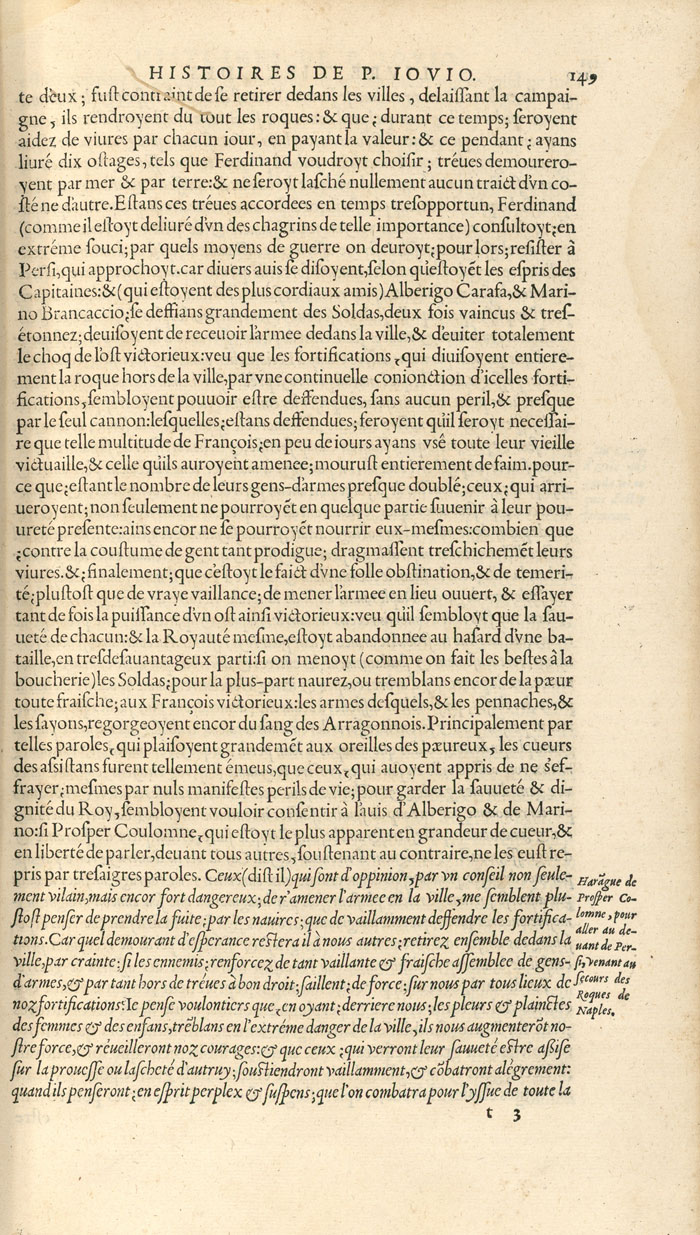 HISTOIRES DE P. IOVIO. 149
te d'eux ; fust contraint de se retirer dedans les villes , delaissant la campai-
gne , ils rendroyent du tout les roques : & que ; durant ce temps ; seroyent
aidez de viures par chacun iour , en payant la valeur : & ce pendant ; ayans
liuré dix ostages , tels que Ferdinand voudroyt choisir ; tréues demourero-
yent par mer & par terre : & ne seroyt lasché nullement aucun traict d'vn co-
sté ne d'autre. Estans ces tréues accordees en temps tresopportun, Ferdinand
(comme il estoyt deliuré d'vn des chagrins de telle importance) consultoyt ; en
extréme souci ; par quels moyens de guerre on deuroyt ; pour lors ; resister à
Persi, qui approchoyt. car diuers auis se disoyent, selon qu'estoyẽt les espris des
Capitaines : & (qui estoyent des plus cordiaux amis) Alberigo Carafa, & Mari-
no Brancaccio ; se deffians grandement des Soldas, deux fois vaincus & tres-
étonnez ; deuisoyent de receuoir l'armee dedans la ville, & d'euiter totalement
le choq de l'ost victorieux : veu que les fortifications , qui diuisoyent entiere-
ment la roque hors de la ville, par vne continuelle conionction d'icelles forti-
fications, sembloyent pouuoir estre deffendues, sans aucun peril, & presque
par le seul cannon : lesquelles ; estans deffendues ; feroyent qu'il seroyt necessai-
re que telle multitude de François ; en peu de iours ayans vsé toute leur vieille
victuaille, & celle qu'ils auroyent amenee ; mourust entierement de faim. pour-
ce que ; estant le nombre de leurs gens-d'armes presque doublé ; ceux ; qui arri-
ueroyent ; non seulement ne pourroyẽt en quelque partie suuenir à leur pou-
ureté presente : ains encor ne se pourroyẽt nourrir eux-mesmes : combien que
; contre la coustume de gent tant prodigue ; dragmassent treschichemẽt leurs
viures. & ; finalement ; que c'estoyt le faict d'vne folle obstination, & de temeri-
té ; plustost que de vraye vaillance ; de mener l'armee en lieu ouuert, & essayer
tant de fois la puissance d'vn ost ainsi victorieux : veu qu'il sembloyt que la sau-
ueté de chacun : & la Royauté mesme, estoyt abandonnee au hasard d'vne ba-
taille, en tresdesauantageux parti : si on menoyt (comme on fait les bestes à la
boucherie) les Soldas ; pour la plus-part naurez, ou tremblans encor de la pœur
toute fraische ; aux François victorieux : les armes desquels, & les pennaches, &
les sayons, regorgeoyent encor du sang des Arragonnois. Principalement par
telles paroles , qui plaisoyent grandemẽt aux oreilles des pœureux , les cueurs
des assistans furent tellement émeus, que ceux , qui auoyent appris de ne s'ef-
frayer ; mesmes par nuls manifestes perils de vie ; pour garder la sauueté & di-
gnité du Roy, sembloyent vouloir consentir à l'auis d'Alberigo & de Mari-
no : si Prosper Coulomne , qui estoyt le plus apparent en grandeur de cueur, &
en liberté de parler, deuant tous autres, soustenant au contraire, ne les eust re-
pris par tresaigres paroles. Ceux (dist il) qui sont d'oppinion, par vn conseil non seule-
ment vilain, mais encor fort dangereux ; de r'amener l'armee en la ville, me semblent plu-
stost penser de prendre la fuite ; par les nauires ; que de vaillamment deffendre les fortifica-
tions. Car quel demourant d'esperance restera il à nous autres ; retirez ensemble dedans la
ville, par crainte : si les ennemis ; renforcez de tant vaillante & fraische assemblee de gens-
d'armes, & par tant hors de tréues à bon droit : saillent ; de force ; sur nous par tous lieux de
noz fortifications? Ie pense voulontiers que , en oyant ; derriere nous ; les pleurs & plainctes
des femmes & des enfans, trẽblans en l'extréme danger de la ville, ils nous augmenterõt no-
stre force, & réueilleront noz courages : & que ceux ; qui verront leur sauueté estre assise
sur la prouesse ou lascheté d'autruy ; soustiendront vaillamment, & cõbatront alégrement :
quand ils penseront ; en esprit perplex & suspens ; que l'on combatra pour l'yssue de toute la
Harãgue de
Prosper Co-
lomne, pour
aller au de-
uant de Per-
si, venant au
secours des
Roques de
Naples.
t 3